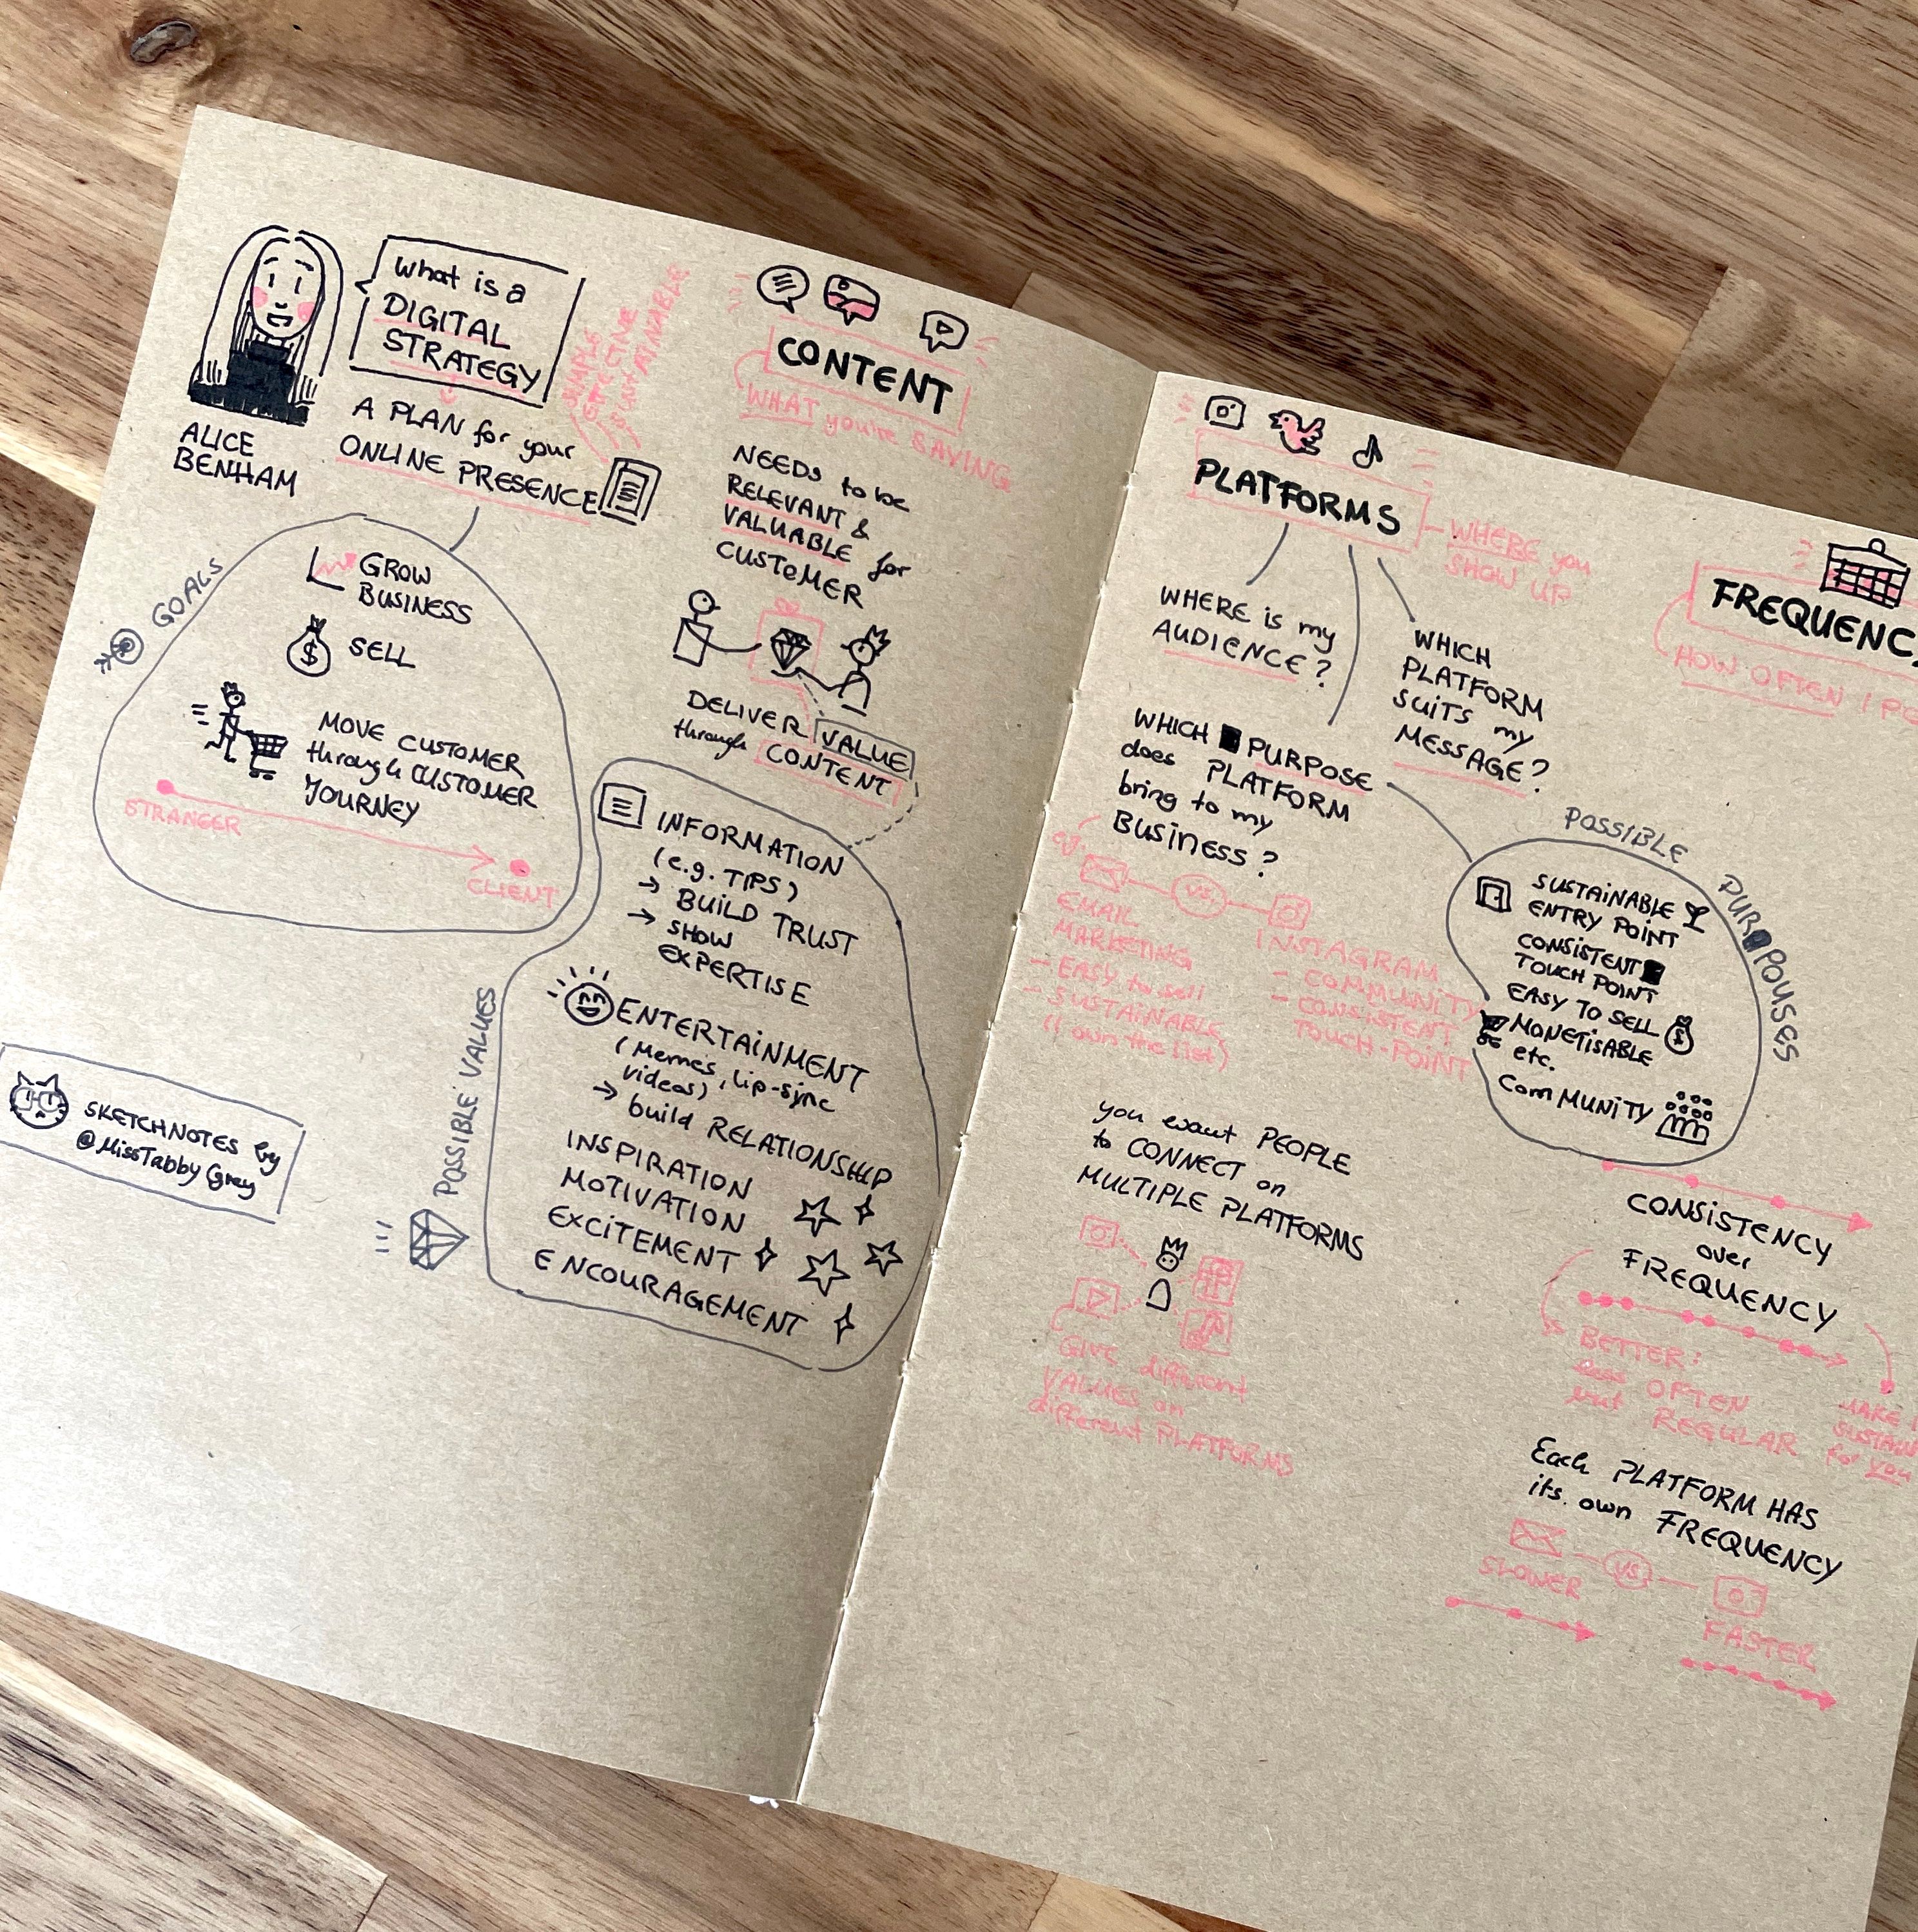 What is a
DIGITAL
STRATEGY
ALICE
BENHAM
A PLAN for your
ONLINE PRESENCE
SIMPLE
EFFECTIVE
MAINTAINABLE
GOALS
GROW
BUSINESS
SELL
$
MOVE CUSTOMER
through CUSTOMER
JOURNEY
STRANGER
CLIENT
SKETCHNOTES by
@MissTabbyGrey
CONTENT
WHAT you're SAYING
NEEDS to be
RELEVANT &
VALUABLE for
CUSTOMER
DELIVER VALUE
through CONTENT
POSSIBLE VALUES
INFORMATION
(e.g. TIPS)
→ BUILD TRUST
→ SHOW
EXPERTISE
ENTERTAINMENT
(Memes, lip-sync
videos)
→ build RELATIONSHIP
INSPIRATION
MOTIVATION
EXCITEMENT
ENCOURAGEMENT
PLATFORMS
WHERE you
SHOW UP
WHERE is my
AUDIENCE?
WHICH PURPOSE
does PLATFORM
bring to my
Business?
WHICH
PLATFORM
suits my
MESSAGE?
VS.
EMAIL
MARKETING
- EASY to sell
- SUSTAINABLE
(I own the list)
INSTAGRAM
- COMMUNITY
- CONSISTENT
TOUCH-POINT
POSSIBLE PURPOUSES
SUSTAINABLE
ENTRY POINT
CONSISTENT
TOUCH POINT
EASY TO SELL
$
MONETISABLE
etc.
COMMUNITY
you want PEOPLE
to CONNECT on
MULTIPLE PLATFORMS
GIVE different
VALUES on
different PLATFORMS
FREQUENC
HOW OFTEN I PO
CONSISTENCY
over
FREQUENCY
BETTER:
less OFTEN
but REGULAR
MAKE I
SUSTAIN
for you
Each PLATFORM HAS
its own FREQUENCY
VS.
SLOWER
FASTER